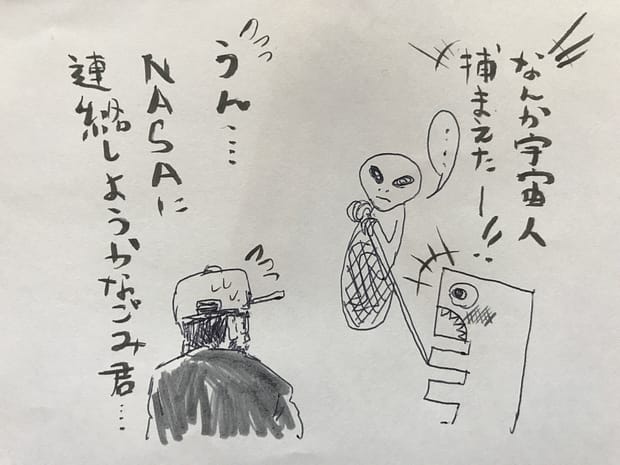 なんか宇宙人
捕まえたー!!
・・・
うん…
NASAに
連絡しようかなごみ君…